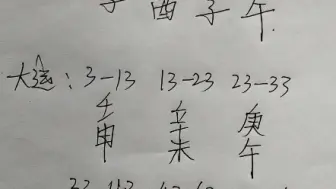 酉 子 午.
大运: 3-13 13-23 23-33
壬 辛 庚
申 未 午